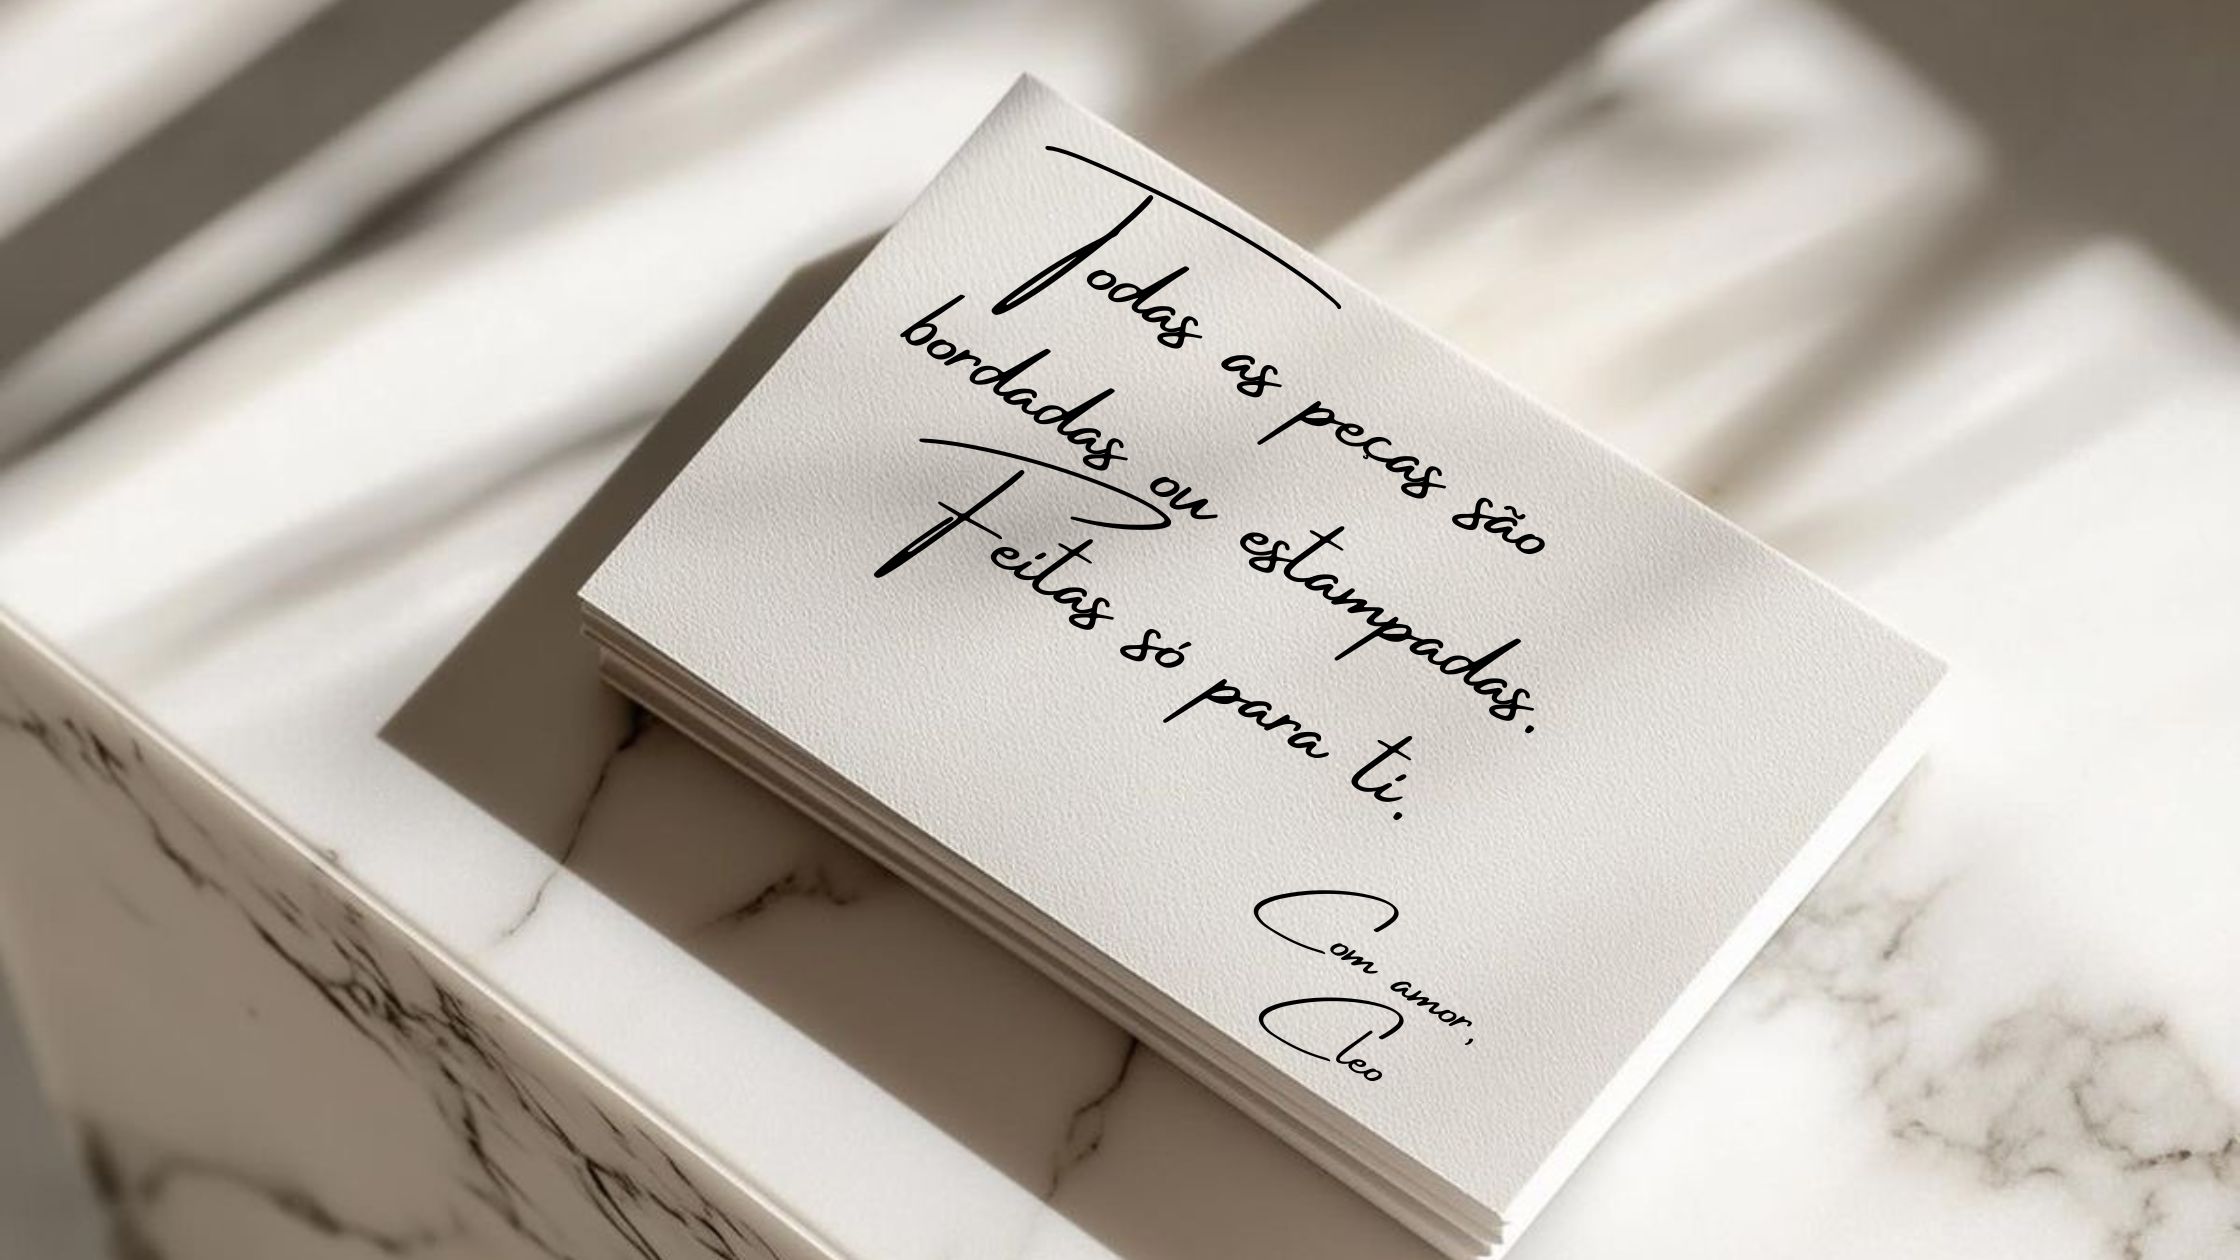 Todas as peças são
bordadas ou estampadas.
Feitas só para ti.
Com amor,
Cleo